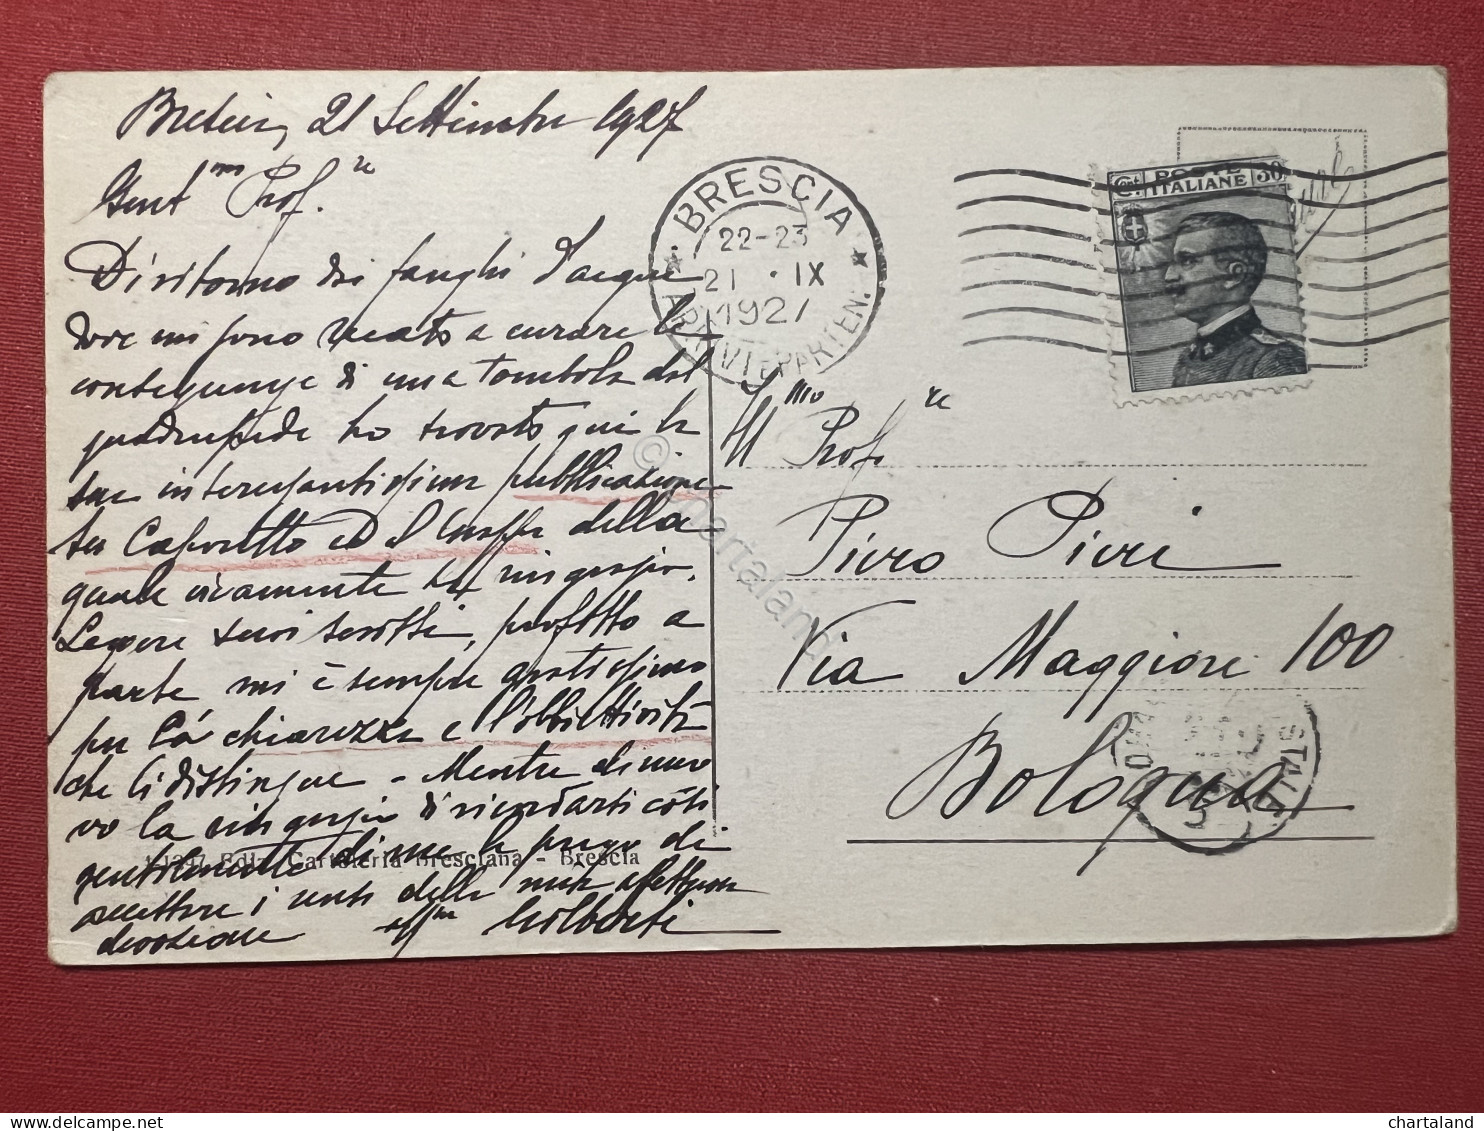 Brescia, 21 Settembre 1927
Gent mo Prof. re
Di ritorno dai fanghi d'acqui
dove mi sono recato a curare le
conseguenze di una tombola dal
quadrupede ho trovato qui la
sua interessantissima pubblicazione
su Caporetto ed il Grappa della
quale vivamente La ringrazio.
Leggere suoi scritti, profitto a
parte mi è sempre gratissimo
per la chiarezza e l'obbiettività
che li distingue - Mentre di nuo
vo la ringrazio di ricordarsi così
gentilmente di me la prego di
accettare i sensi della mia affettuosa
devozione aff mo
Ediz. Cartoleria Bresciana - Brescia
BRESCIA
22-23
21 · IX
1927
ARRIVI E PARTEN.
Cmi POSTE ITALIANE 30
Ill mo
Prof. re
Piero Pieri
Via Maggiore 100
Bologna
© chartaland
chartaland
www.delcampe.net